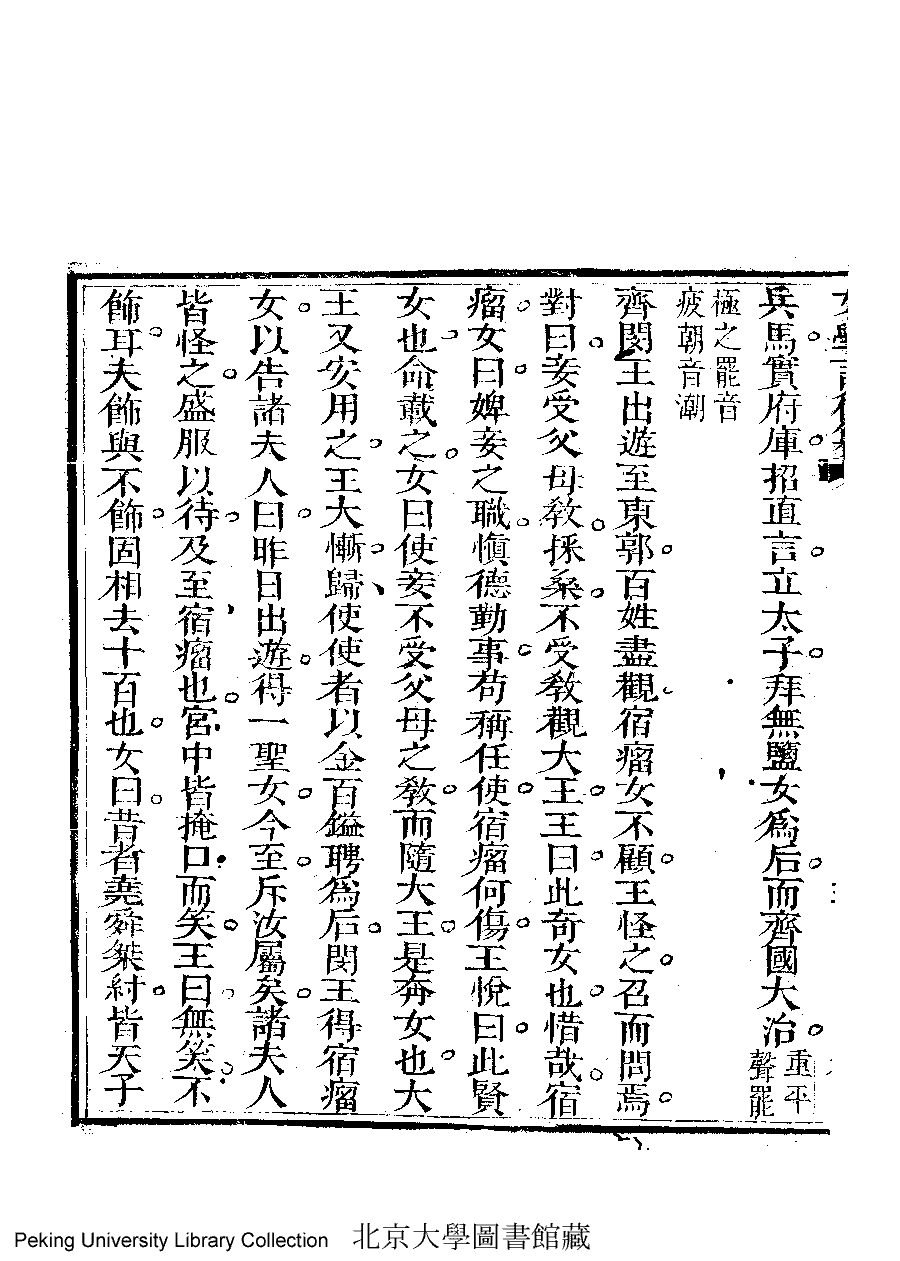 兵馬實府庫招直言立太子拜無鹽女爲后而齊國大治重平聲罷
極之罷音
疲朝音潮
齊閔王出遊至東郭百姓盡觀宿瘤女不顧王怪之召而問焉
對曰妾受父母敎採桑不受敎觀大王王曰此奇女也惜哉宿
瘤女曰婢妾之職愼德勤事苟稱任使宿瘤何傷王悅曰此賢
女也命載之女曰使妾不受父母之敎而隨大王是奔女也大
王又安用之王大慚歸使使者以金百鎰聘爲后閔王得宿瘤
女以告諸夫人曰昨日出遊得一聖女今至斥汝屬矣諸夫人
皆怪之盛服以待及至宿瘤也宮中皆掩口而笑王曰無笑不
飾耳夫飾與不飾固相去十百也女曰昔者堯舜桀紂皆天子
Peking University Library Collection 北京大學圖書館藏